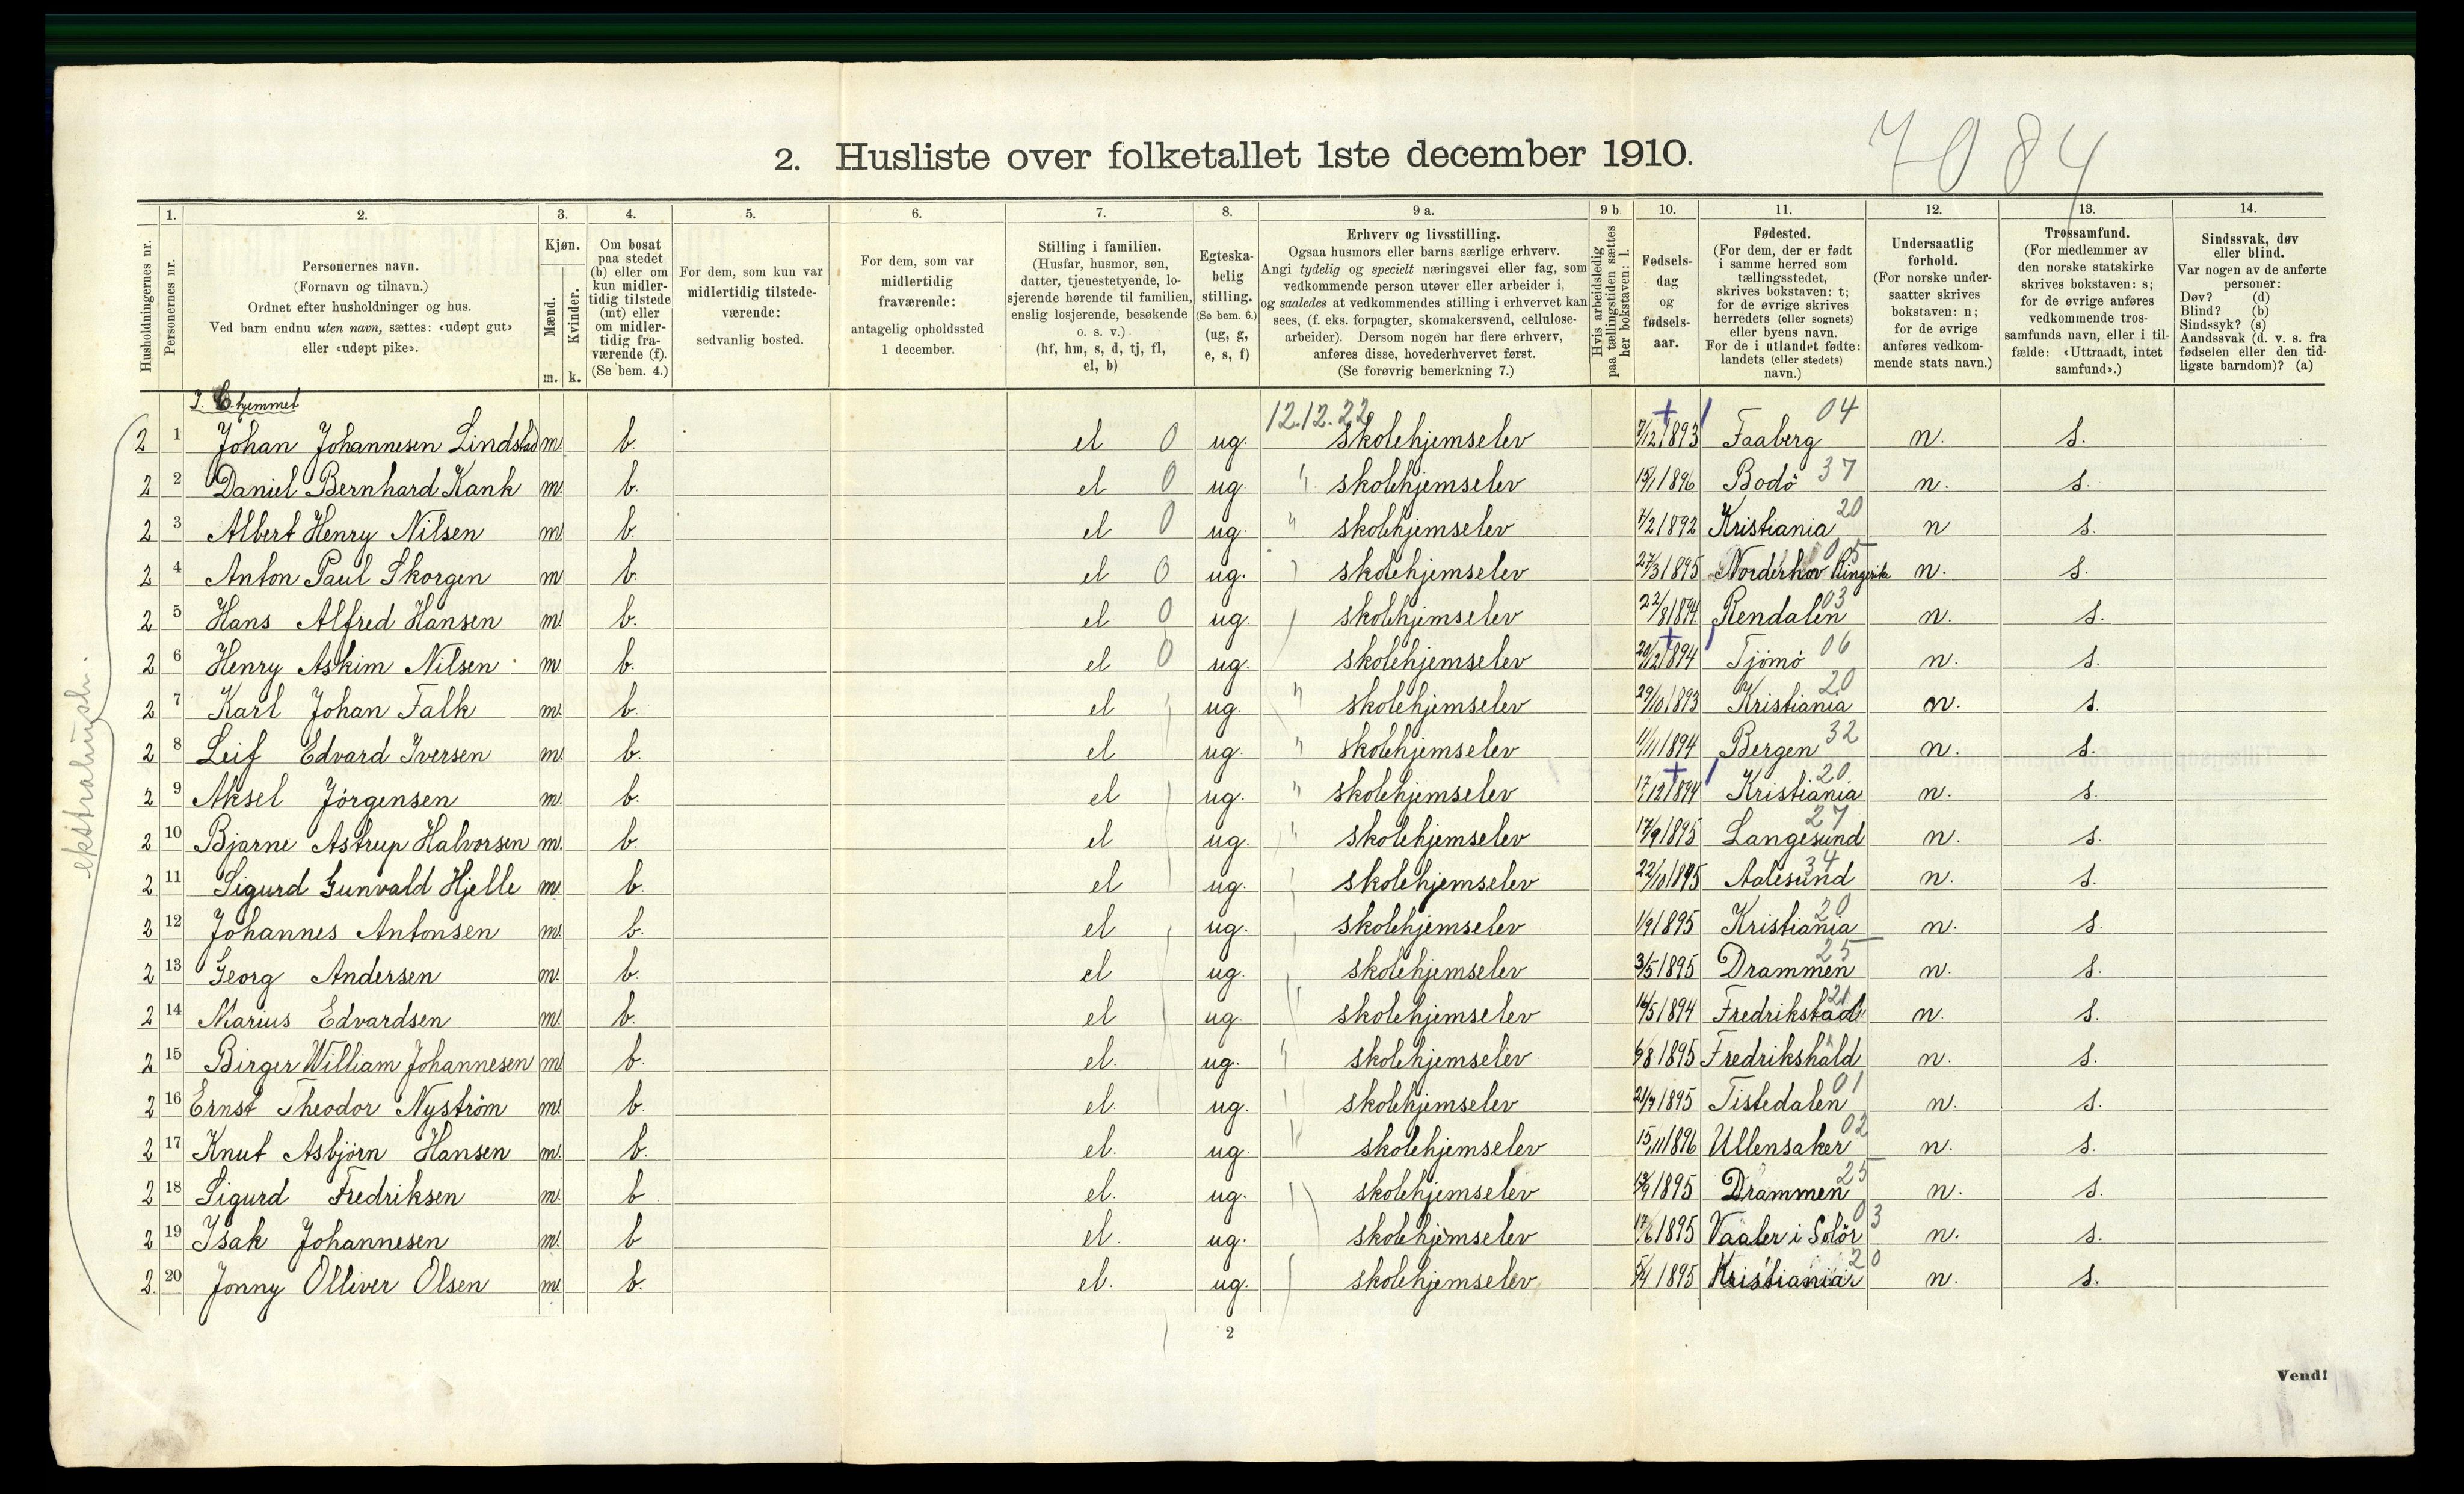 7084
2. Husliste over folketallet 1ste december 1910.
Husholdningernes nr.
1. Personernes nr.
2. Personernes navn. (Fornavn og tilnavn.) Ordnet efter husholdninger og hus. Ved barn endnu uten navn, sættes: «udøpt gut» eller «udøpt pike».
3. Kjøn. Mænd. m. Kvinder. k.
4. Om bosat paa stedet (b) eller om kun midlertidig tilstede (mt) eller om midlertidig fraværende (f). (Se bem. 4.)
5. For dem, som kun var midlertidig tilstedeværende: sedvanlig bosted.
6. For dem, som var midlertidig fraværende: antagelig opholdssted 1 december.
7. Stilling i familien. (Husfar, husmor, søn, datter, tjenestetyende, losjerende hørende til familien, enslig losjerende, besøkende o. s. v.) (hf, hm, s, d, tj, fl, el, b)
8. Egteskabelig stilling. (Se bem. 6.) (ug, g, e, s, f)
9 a. Erhverv og livsstilling. Ogsaa husmors eller barns særlige erhverv. Angi tydelig og specielt næringsvei eller fag, som vedkommende person utøver eller arbeider i, og saaledes at vedkommendes stilling i erhvervet kan sees, (f. eks. forpagter, skomakersvend, cellulosearbeider). Dersom nogen har flere erhverv, anføres disse, hovederhvervet først. (Se forøvrig bemerkning 7.)
9 b Hvis arbeidsledig paa tællingstiden sættes her bokstaven: l.
10. Fødselsdag og fødselsaar.
11. Fødested. (For dem, der er født i samme herred som tællingsstedet, skrives bokstaven: t; for de øvrige skrives herredets (eller sognets) eller byens navn. For de i utlandet fødte: landets (eller stedets) navn.)
12. Undersaatlig forhold. (For norske undersaatter skrives bokstaven: n; for de øvrige anføres vedkommende stats navn.)
13. Trossamfund. (For medlemmer av den norske statskirke skrives bokstaven: s; for de øvrige anføres vedkommende trossamfunds navn, eller i tilfælde: «Uttraadt, intet samfund».)
14. Sindssvak, døv eller blind. Var nogen av de anførte personer: Døv? (d) Blind? (b) Sindssyk? (s) Aandssvak (d. v. s. fra fødselen eller den tidligste barndom)? (a)
hjemmet
12.12.22
2 1 Johan Johannesen Lindstad m. b. el 0 ug. skolehjemselev 7/12 1893 Faaberg 04 n. s.
2 2 Daniel Bernhard Kank m. b. el 0 ug. " skolehjemselev 15/1 1896 Bodö 37 n. s.
2 3 Albert Henry Nilsen m. b. el 0 ug. " skolehjemselev 7/2 1892 Kristiania 20 n s.
2 4 Anton Paul Skorgen m b. el 0 ug. skolehjemselev 27/3 1895 Norderhov Ringerike 05 n. s.
2 5 Hans Alfred Hansen m. b. el 0 ug. skolehjemselev 22/8 1894 Rendalen 03 n. s.
2 6 Henry Askim Nilsen m b. el 0 ug. skolehjemselev 20/12 1894 Tjömö 06 n. s.
2 7 Karl Johan Falk m. b. el ug. " skolehjemselev 29/10 1893 Kristiania 20 n. s.
2 8 Leif Edvard Iversen m. b. el ug. " skolehjemselev 1/11 1894 Bergen 32 n. s.
2 9 Aksel Jörgensen m. b. el ug. " skolehjemselev 17/12 1894 Kristiania 20 n. s.
2 10 Bjarne Astrup Halvorsen m. b. el ug. " skolehjemselev 17/9 1895 Langesund 27 n. s.
2 11 Sigurd Gunvald Hjelle m. b. el ug. skolehjemselev 22/10 1895 Aalesund 34 n. s.
2 12 Johannes Antonsen m. b. el ug. skolehjemselev 1/9 1895 Kristiania 20 n. s.
2 13 Georg Andersen m. b. el ug. skolehjemselev 3/5 1895 Drammen 25 n. s.
2 14 Marius Edvardsen m. b. el ug. skolehjemselev 14/5 1894 Fredrikstad 21 n. s.
2 15 Birger William Johannesen m. b. el. ug. skolehjemselev 8 1895 Fredrikshald n. s.
2 16 Ernst Theodor Nyström m. b. el. ug. skolehjemselev 21/7 1895 Tistedalen 01 n. s.
2 17 Knut Asbjörn Hansen m. b. el. ug. skolehjemselev 15/11 1896 Ullensaker 02 n. s.
2 18 Sigurd Fredriksen m. b el. ug. skolehjemselev 1895 Drammen 25 n. s.
2 19 Isak Johannesen m. b el. ug. skolehjemselev 17/6 1895 Vaaler i Solör 03 n. s.
2 20 Jonny Olliver Olsen m. b. el. ug. skolehjemselev 5/4 1895 Kristiania 20 n. s.
2
Vend!